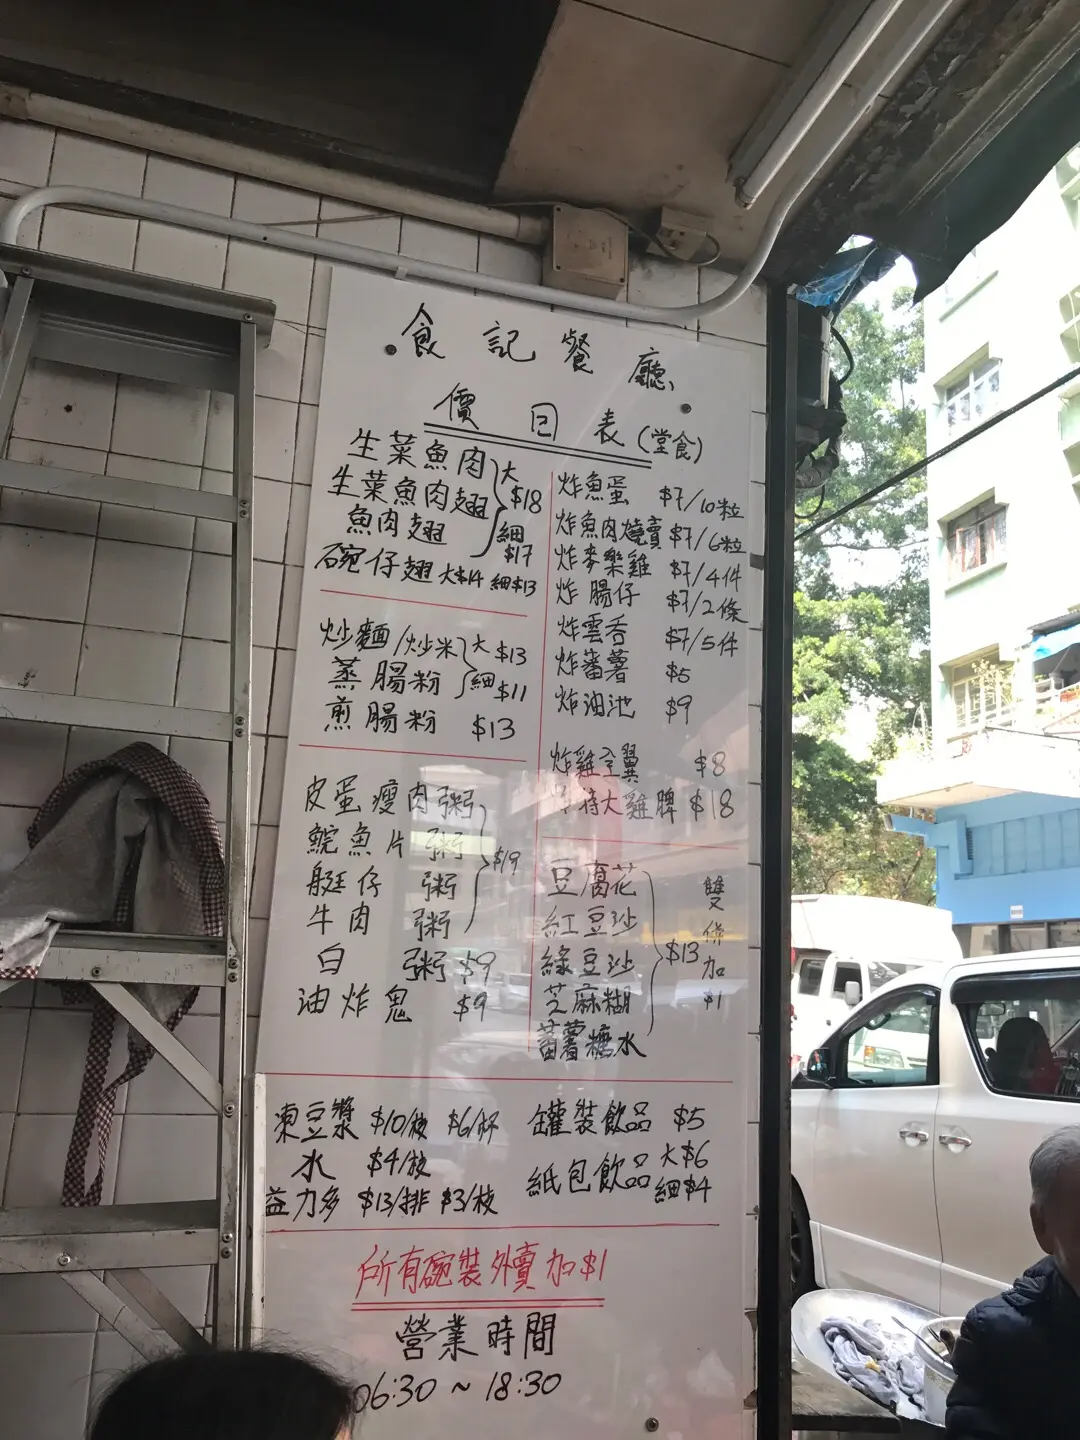 食記餐廳
價目表(堂食)
生菜魚肉
生菜魚肉翅
魚肉翅
大 $18
細 $17
碗仔翅 大$14 細$13
炒麵/炒米
蒸腸粉
大 $13
細 $11
煎腸粉 $13
皮蛋瘦肉粥
鯇魚片粥
艇仔粥
牛肉粥
$19
白粥 $9
油炸鬼 $9
炸魚蛋 $7/10粒
炸魚肉燒賣 $7/6粒
炸麥樂雞 $7/4件
炸腸仔 $7/2條
炸雲吞 $7/5件
炸蕃薯 $5
炸油池 $9
炸雞全翼 $8
特大雞髀 $18
豆腐花
紅豆沙
綠豆沙
芝麻糊
蕃薯糖水
$13
雙併加$1
凍豆漿 $10/枝 $6/杯
水 $4/枝
益力多 $13/排 $3/枝
罐裝飲品 $5
紙包飲品 大$6 細$4
所有碗裝外賣加$1
營業時間
06:30 ~ 18:30